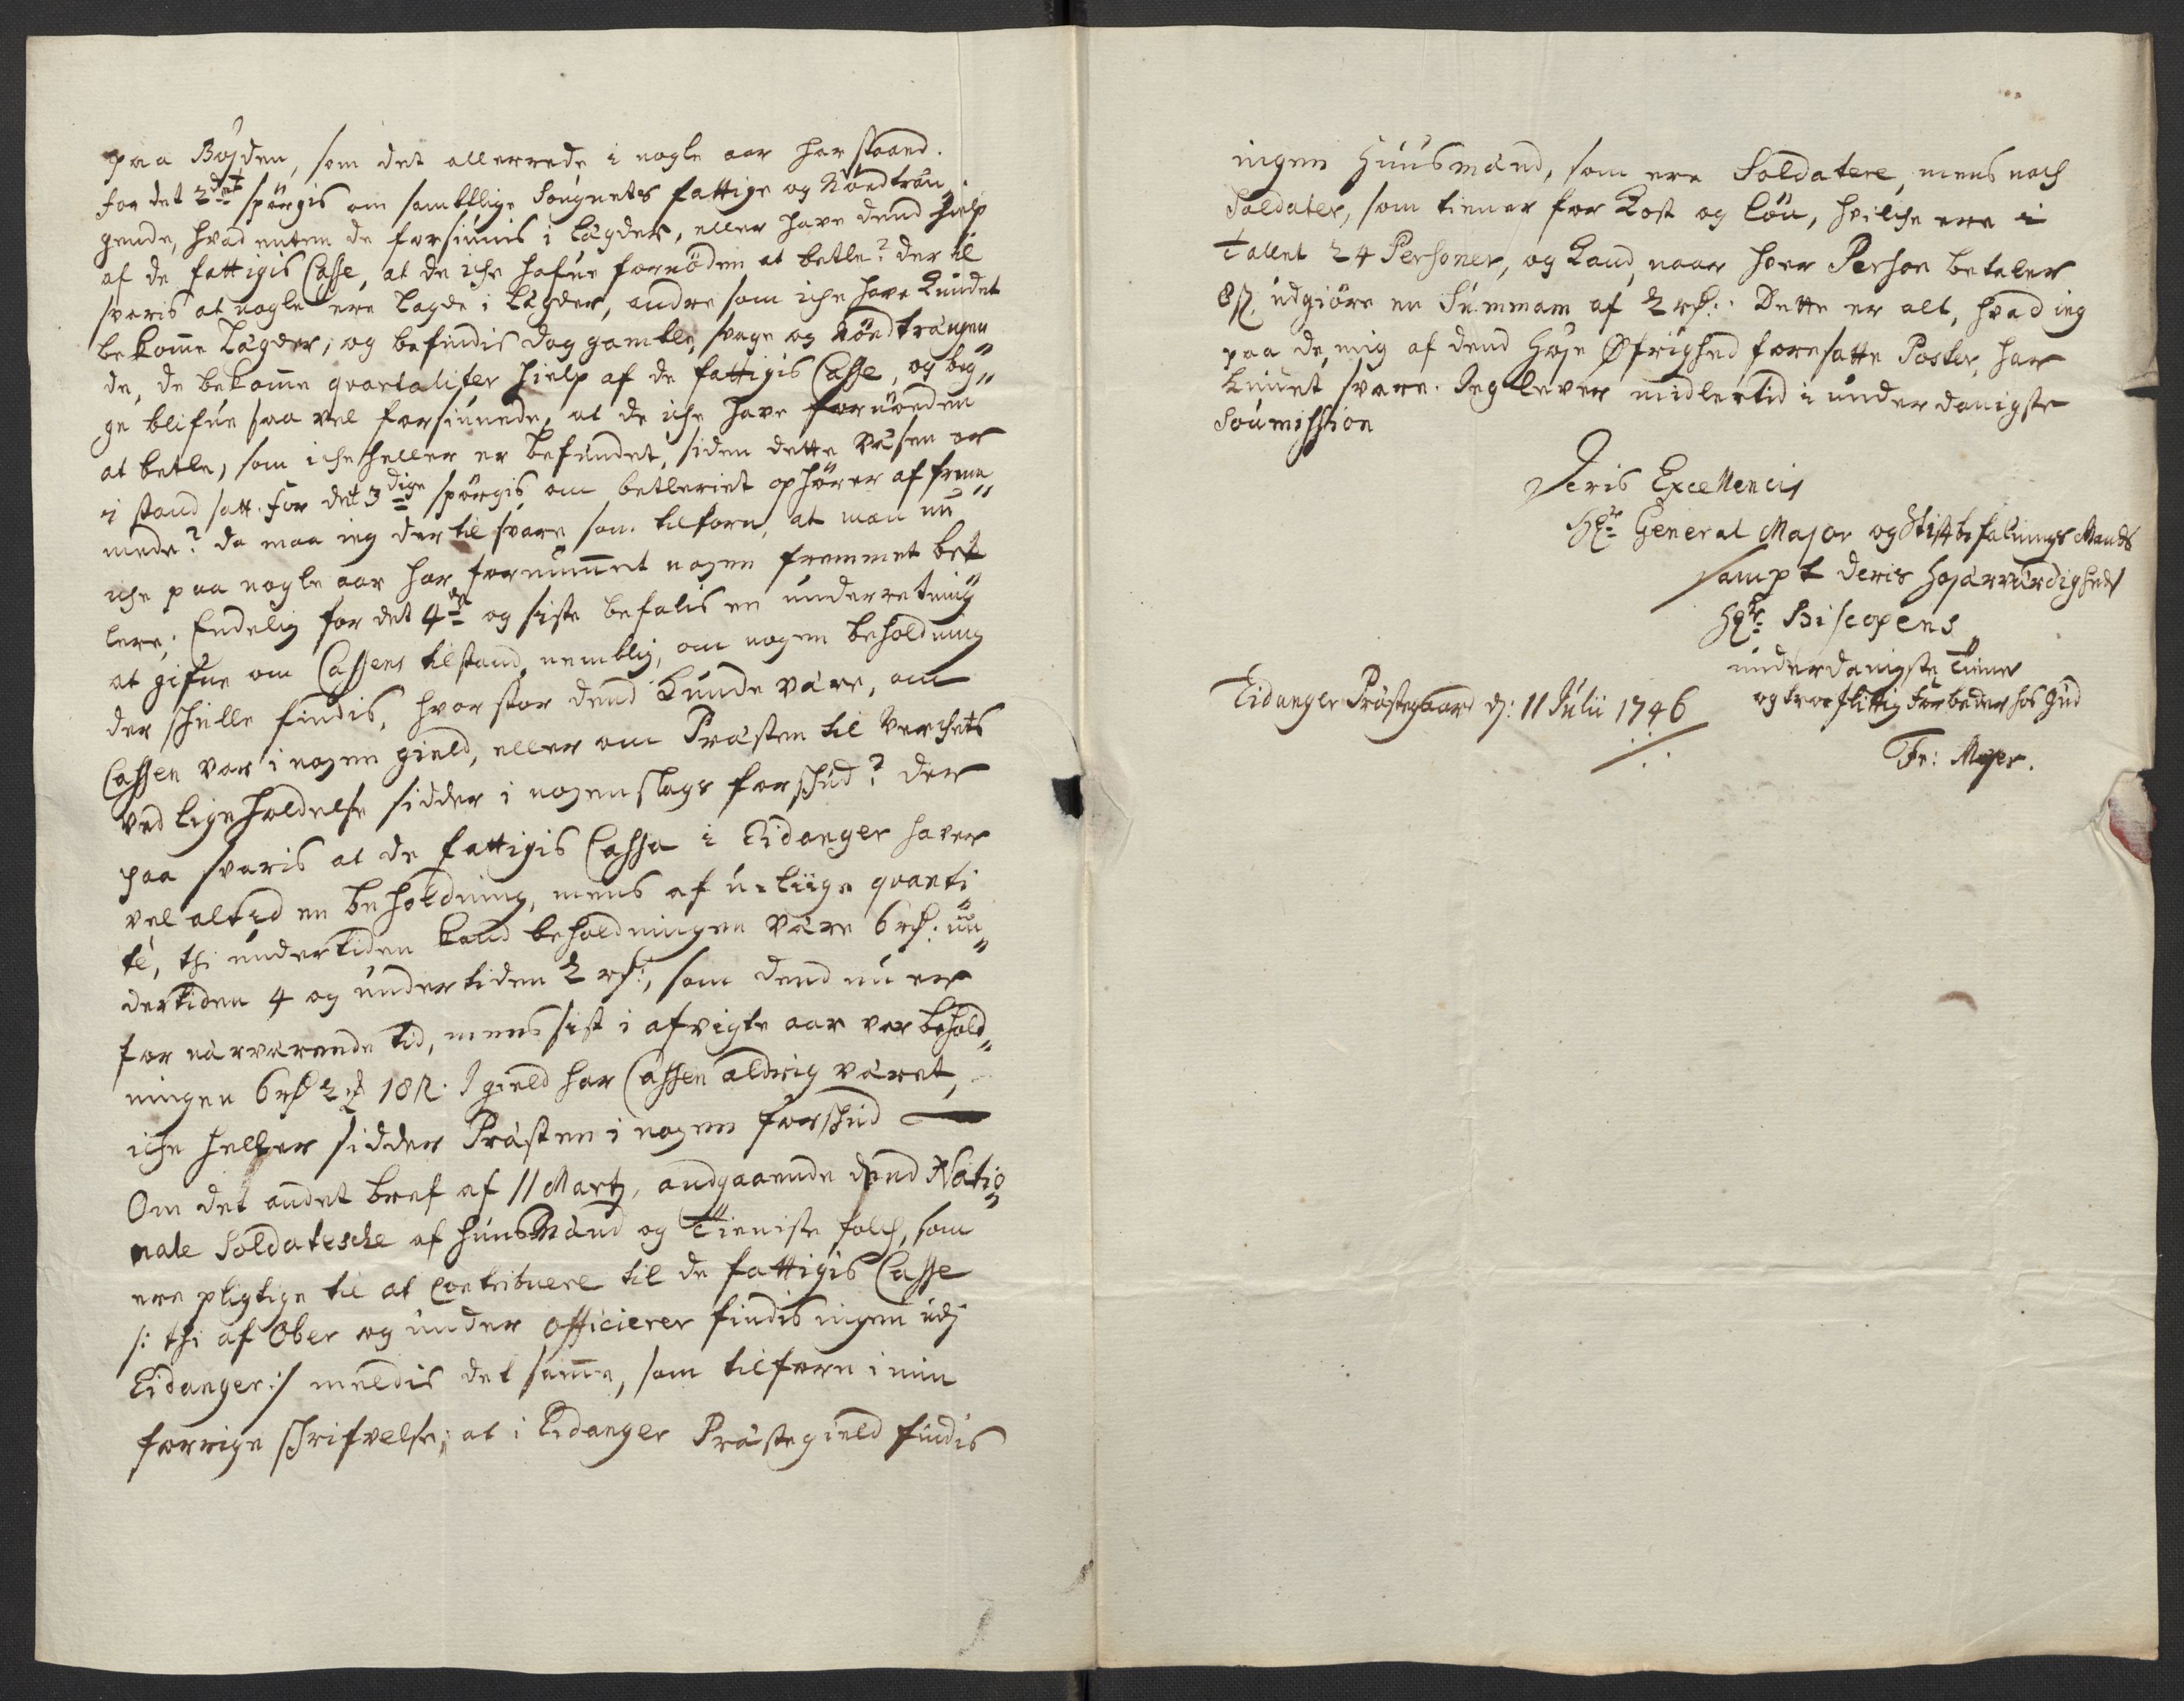 paa Böyden, som det allerrede i nogle aar har staaed.
for det 2det spörgis om samtllige Sougnets fattige og Nöedträn„
gende, hvad enten de forsiunis i Lägder, eller have dend Hielp
af de fattigis Casse, at de iche hafue fornöden at betle? der til
svaris at nogle ere lagde i Lägder, andre som iche have Kundet
bekom̄e Lägder, og befindis dog gamble, svage og Nöedträngen
de, de bekom̄e qvartaliter Hielp af de fattigis Casse, og beg„
ge blifue saa vel forsiunede, at de iche have fornöeden
at betle, som iche heller er befundet, siden dette Väsen er
i stand satt. for det 3dige spörgis, om betleriet ophörer af frem„
mede? da maa ieg der til svare som tilforn, at man nu
iche paa nogle aar har fornum̄et nogen fremmet bet
lere; Endelig for det 4de og siste befalis en underretning
at gifue om Cassens tilstand, nemblig, om nogen beholdning
der skulle findis, hvor stor dend Kunde väre, om
Cassen var i nogen gield, eller om Prästen til Verchets
vedligeholdelse sidder i nogenslags forskud? der
paa svaris at de fattigis Cassa i Eidanger haver
vel altid en beholdning, mens af u-liige qvanti
té, thi undertiden kand beholdningen väre 6 rd: un„
dertiden 4 og undertiden 2 rd:, som dend nu er
for närvärende tid, mens sist i afvigte aar var behold„
ningen 6 rd 2 ꝟ 18 s. I gield har Cassen aldrig väret,
iche heller sidder Prästen i nogen forskud
Om det andet bref af 11 Martj, andgaaende dend Natio
nale Soldatesche af huusMänd og Tieniste folch, som
ere pligtige til at contribuere til de fattigis Casse
/: thi af Ober og under officierer findis ingen udj
Eidanger :/ meldis det sam̄e, som tilforn i min
forrige skrifvelse; at i Eidanger Prästegield findis
ingen Huusmänd, som ere Soldatere, mens noch
Soldater, som tiener for Kost og Lön, hvilche ere i
Tallet 24 Personer, og Kand, naar hver Person betaler
8 s. udgiöre en Summam af 2 rd: Dette er alt, hvad ieg
paa de, mig af dend Höje Øfrighed foresatte Poster, har
Kundet svare. Jeg lever midlertid i underdanigste
Soumission
Deris Excellencis
Hr: General Major og Stiftbefalnings Mands
sampt deris Høyärværdigheds
Hr: Biscopens
underdanigste Tiener
og troeflittig forbeder hos Gud
Eidanger Prästegaard dj: 11 Julii 1746
Fr: Mejer.